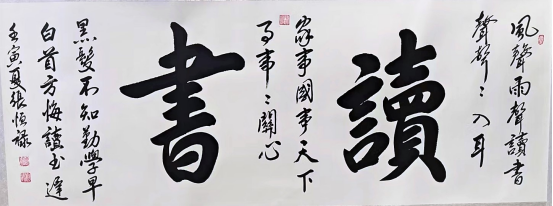 風聲雨聲讀書
聲聲〻入耳
讀
家事國事天下
事事〻關心
書
黑髮不知勤學早
白首方悔讀书遲
壬寅夏張恒祿